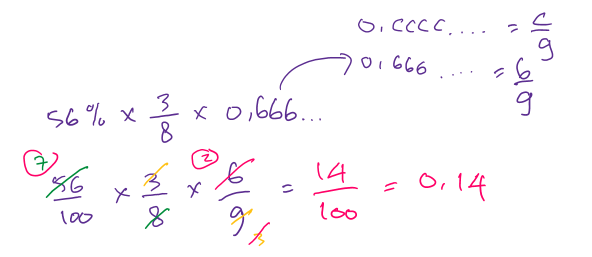 0,cccc.... = c/9
0,666 .... = 6/9
56% x 3/8 x 0,666...
7 2
56/100 x 3/8 x 6/9 = 14/100 = 0.14
3